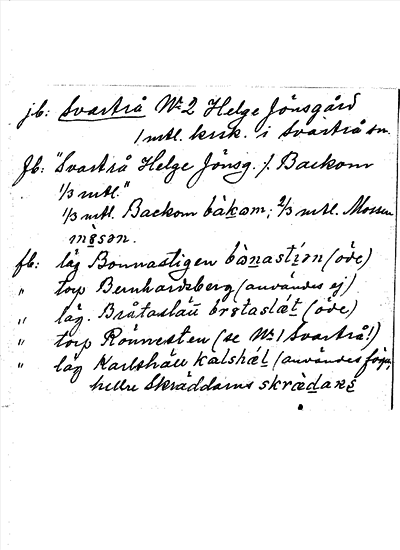 jb: Svartrå No 2 Helge Jönsgård
1 mtl. krsk. i Svartrå sn.
Jb: "Svartrå Helge Jönsg. /. Backom
1/3 mtl."
1/3 mtl. Backom bàkɔm; 2/3 mtl. Mossen
mɔ̀sən.
fb: läg Bonnastigen bònastíən (öde)
" torp Bernhardsberg (användes ej)
" läg. Bråtaslätt brɔtaslǽt (öde)
" torp Rönnesten (se No 1 Svartrå!)
" läg Karlshäll kalshǽl (användes föga,
hellre Skräddarns skrædaɴs